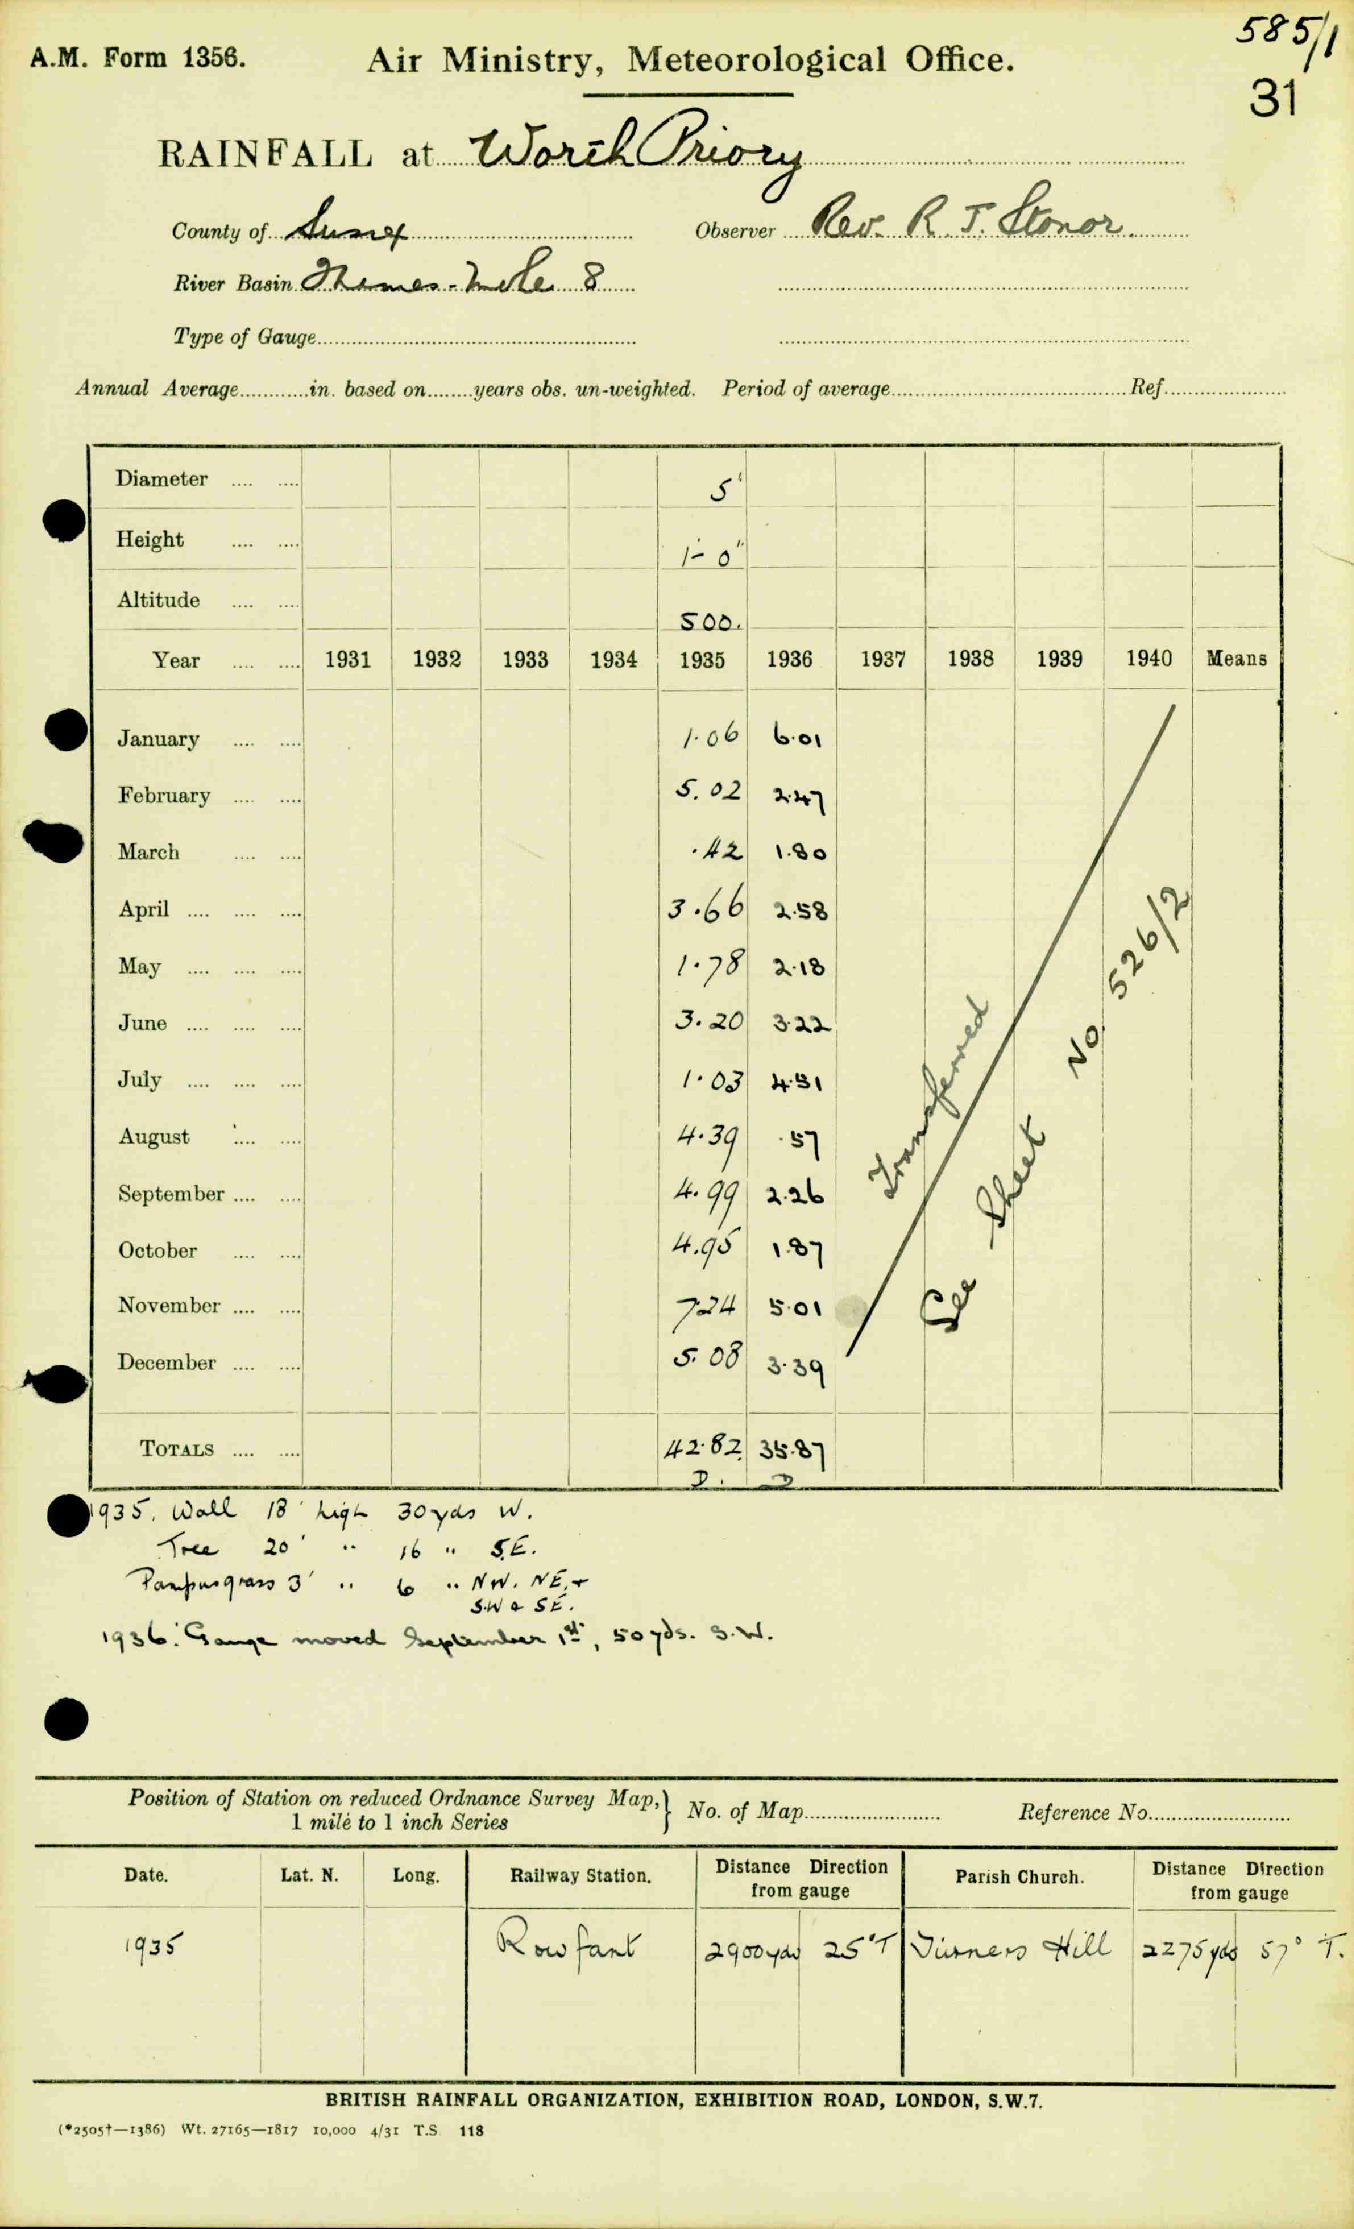 585/1
A.M. Form 1356. Air Ministry, Meteorological Office.
31
RAINFALL at Worth Priory
County of Sussex Observer Rev. R. J. Stonor.
River Basin Thames-Mole 8
Type of Gauge
Annual Average in. based on years obs. un-weighted. Period of average Ref.
Diameter .... .... 5'
Height .... .... 1'-0"
Altitude .... .... 500.
Year .... .... 1931 1932 1933 1934 1935 1936 1937 1938 1939 1940 Means
January .... .... 1.06 6.01
February .... .... 5.02 2.47
March .... .... .42 1.80
April .... .... .... 3.66 2.58
May .... .... .... 1.78 2.18
June .... .... .... 3.20 3.22
July .... .... .... 1.03 4.51
August .... .... 4.39 .57
September .... .... 4.99 2.26
October .... .... 4.95 1.87
November .... .... 7.24 5.01
December .... .... 5.08 3.39
TOTALS .... .... 42.82 35.87
D. D
Transferred
See Sheet No. 526/2
1935. Wall 18' high 30 yds W.
Tree 20' " 16 " S.E.
Pampasgrass 3' " 6 " NW. NE, +
S.W & SE.
1936: Gauge moved September 1st, 50 yds. S.W.
Position of Station on reduced Ordnance Survey Map, } No. of Map Reference No.
1 mile to 1 inch Series
Date. Lat. N. Long. Railway Station. Distance Direction from gauge Parish Church. Distance Direction from gauge
1935 Rowfant 2900 yds 25° T Turners Hill 2275 yds 57° T.
BRITISH RAINFALL ORGANIZATION, EXHIBITION ROAD, LONDON, S.W.7.
(*2505†—1386) Wt. 27165—1817 10,000 4/31 T.S. 118